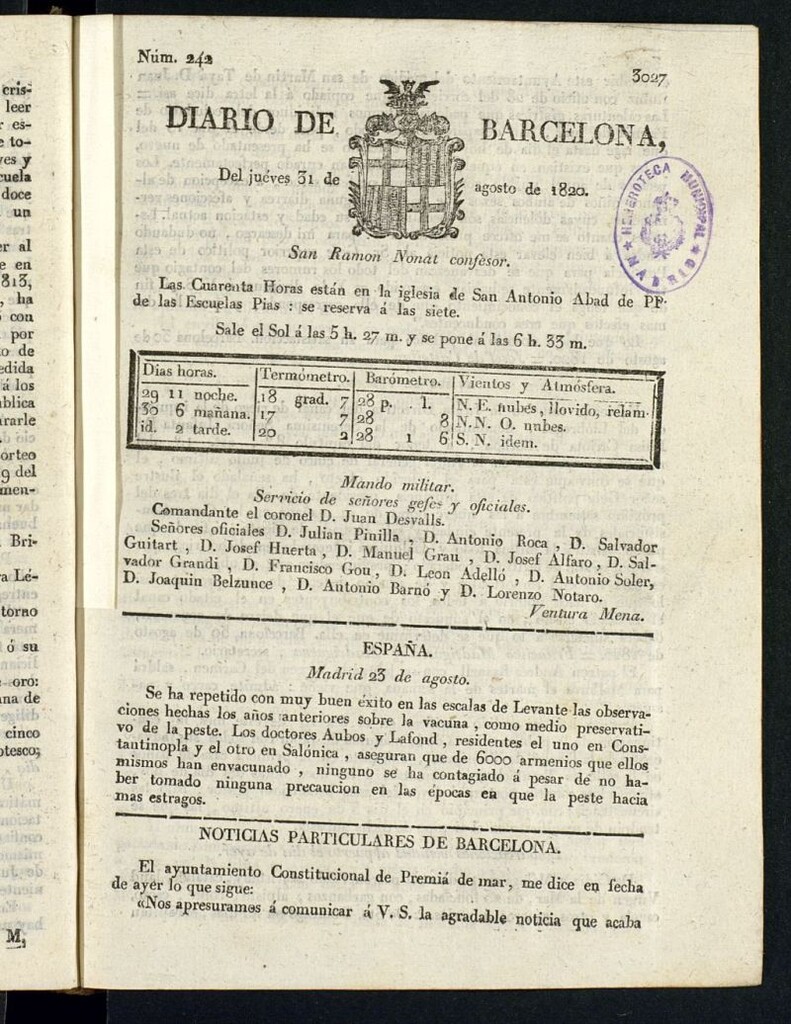 Núm. 242
3027
DIARIO DE BARCELONA,
Del juéves 31 de agosto de 1820.
HEMEROTECA MUNICIPAL
★ MADRID ★
San Ramon Nonat confesor.
Las Cuarenta Horas están en la iglesia de San Antonio Abad de PP.
de las Escuelas Pias : se reserva á las siete.
Sale el Sol á las 5 h. 27 m. y se pone á las 6 h. 33 m.
Dias horas. Termómetro. Barómetro. Vientos y Atmósfera.
29 11 noche. 18 grad. 7 28 p. . l. N. E. nubes, llovido, relam.
30 6 mañana. 17 7 28 8 N.N. O. nubes.
id. 2 tarde. 20 2 28 1 6 S. N. idem.
Mando militar.
Servicio de señores gefes y oficiales.
Comandante el coronel D. Juan Desvalls.
Señores oficiales D. Julian Pinilla , D. Antonio Roca , D. Salvador
Guitart , D. Josef Huerta , D. Manuel Grau , D. Josef Alfaro , D. Sal-
vador Grandi , D. Francisco Gou , D. Leon Adelló , D. Antonio Soler,
D. Joaquin Belzunce , D. Antonio Barnó y D. Lorenzo Notaro.
Ventura Mena.
ESPAÑA.
Madrid 23 de agosto.
Se ha repetido con muy buen éxito en las escalas de Levante las observa-
ciones hechas los años anteriores sobre la vacuna , como medio preservati-
vo de la peste. Los doctores Aubos y Lafond , residentes el uno en Cons-
tantinopla y el otro en Salónica , aseguran que de 6000 armenios que ellos
mismos han envacunado , ninguno se ha contagiado á pesar de no ha-
ber tomado ninguna precaucion en las épocas en que la peste hacia
mas estragos.
NOTICIAS PARTICULARES DE BARCELONA.
El ayuntamiento Constitucional de Premiá de mar, me dice en fecha
de ayer lo que sigue:
«Nos apresuramos á comunicar á V. S. la agradable noticia que acaba